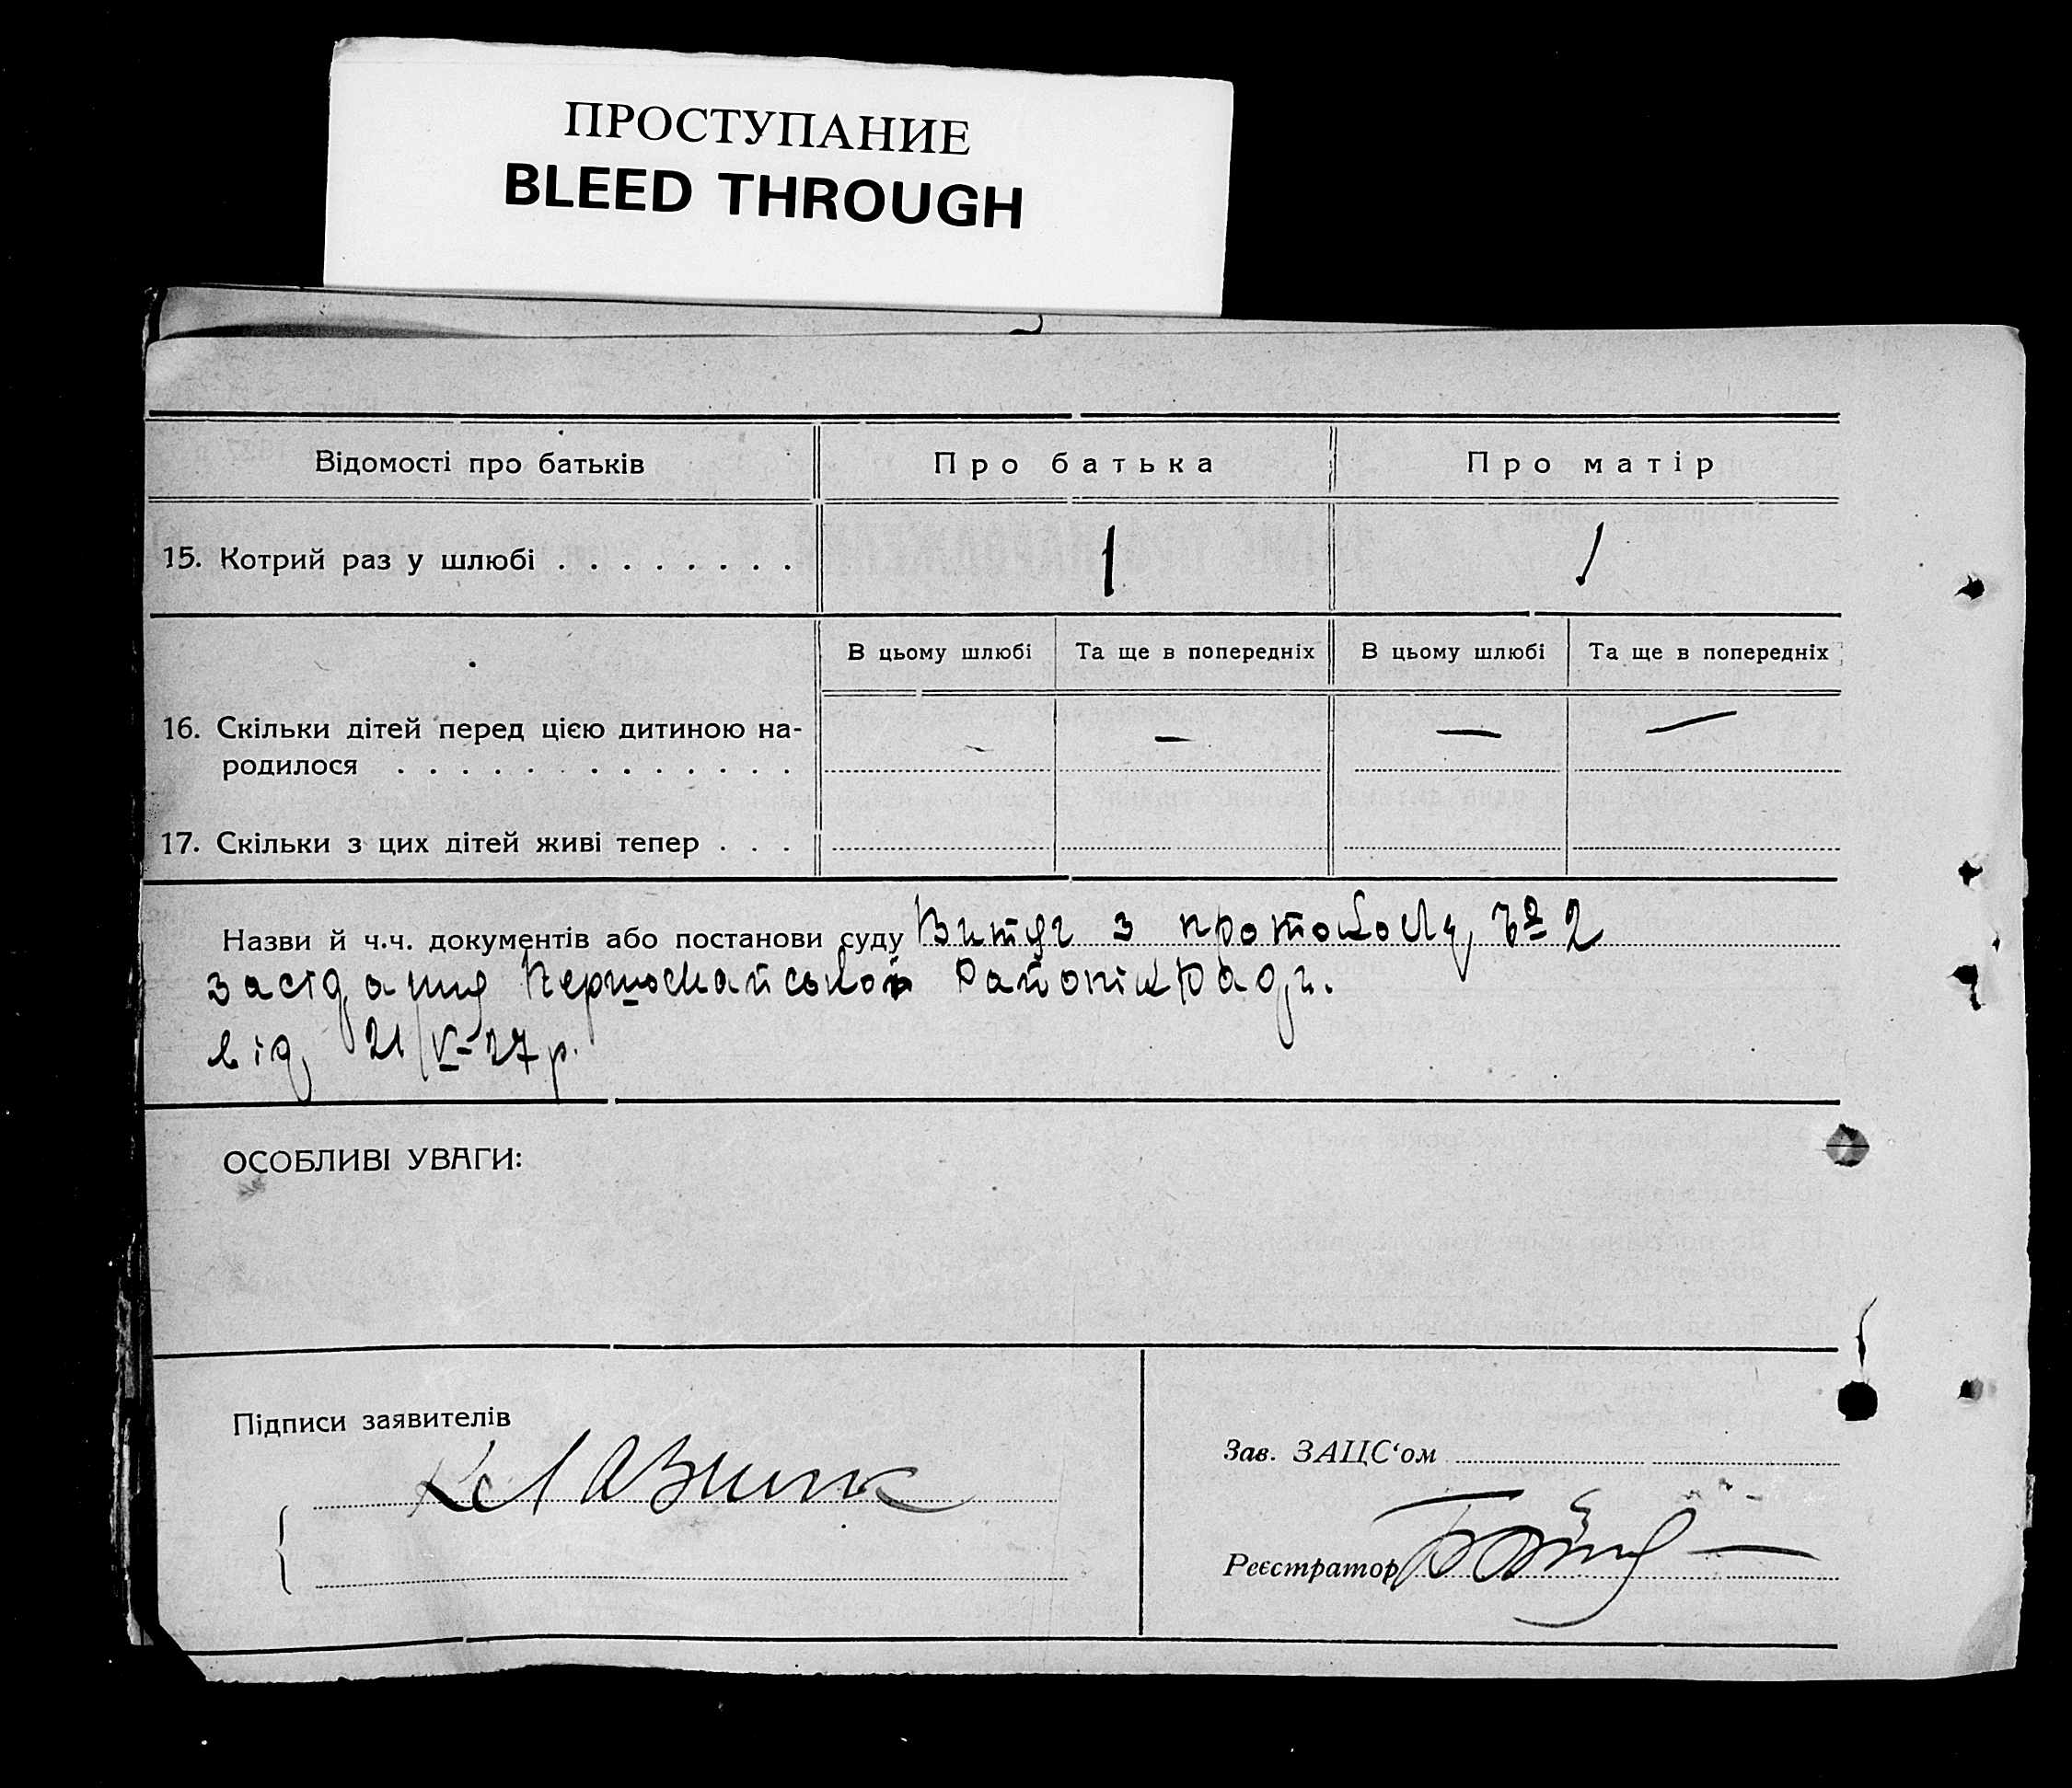 ПРОСТУПАНИЕ
BLEED THROUGH
Відомості про батьків Про батька Про матір
15. Котрий раз у шлюбі . . . . . . . . 1 1
В цьому шлюбі Та ще в попередніх В цьому шлюбі Та ще в попередніх
16. Скільки дітей перед цією дитиною на-
родилося . . . . . . . . . . . . . — — — —
17. Скільки з цих дітей живі тепер . . .
Назви й ч.ч. документів або постанови суду Витяг з протоколу № 2
засідання Першомайської Районкради.
від 21/V-27 р.
ОСОБЛИВІ УВАГИ:
Підписи заявителів
Зав. ЗАЦС‘ом
Реєстратор